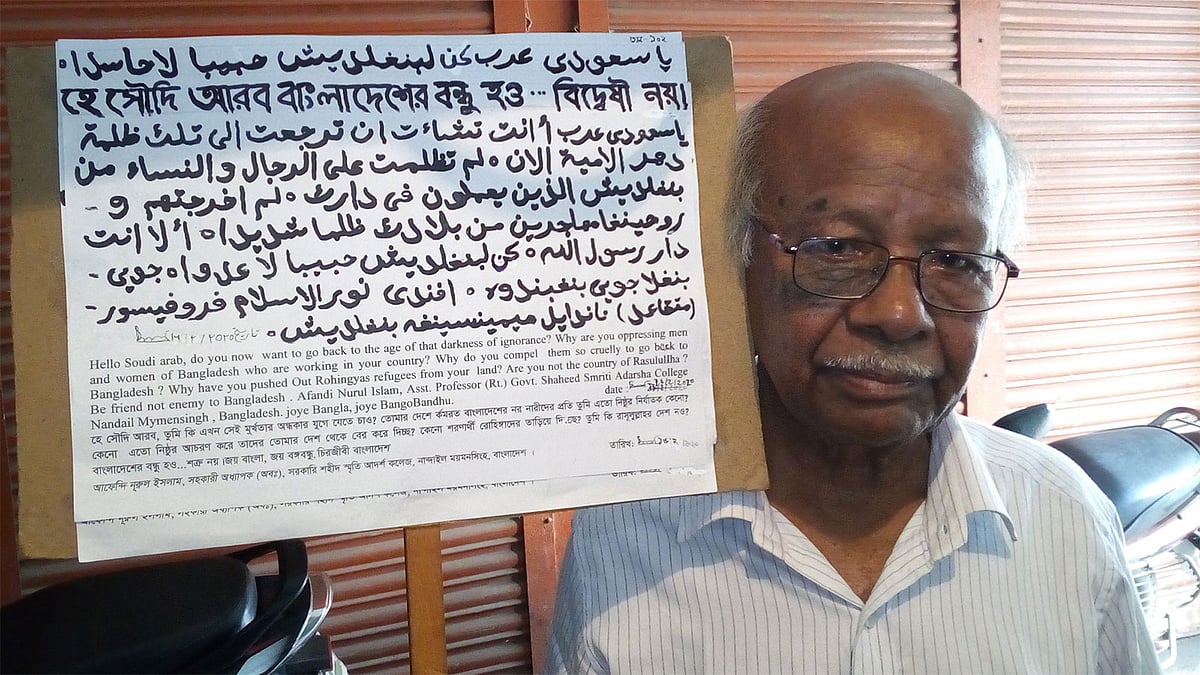 یا سعودی عرب کن لبنغلدیش حبیبا لا حاسدا۰
হে সৌদি আরব বাংলাদেশের বন্ধু হও... বিদ্বেষী নয়।
یا سعودی عرب أ انت تشاءت ان ترجعت الی تلك ظلمة
دهر الامیة الان ۰ لم تظلمت علی الرجال و النساء من
بنغلدیش الذین یعملون فی دارك ۰ لم اخرجتهم و -
روحینغا مهاجرین من بلادك ظلما شدیدا۰ أ لا انت
دار رسول الله ۰ کن لبنغلدیش حبیبا لا عدوا۰ جویی -
بنغلا جویی بنغبندو۰ افندی نور الاسلام فروفیسور -
(متقاعد) ناندایل میمینسینغه بنغلدیش۰
Hello Soudi arab, do you now want to go back to the age of that darkness of ignorance? Why are you oppressing men
and women of Bangladesh who are working in your country? Why do you compel them so cruelly to go to back
Bangladesh ? Why have you pushed Out Rohingyas refugees from your land? Are you not the country of Rasulullha ?
Be friend not enemy to Bangladesh . Afandi Nurul Islam, Asst. Professor (Rt.) Govt. Shaheed Smriti Adarsha College
Nandail Mymensingh , Bangladesh. joye Bangla, joye BangoBandhu. date :
হে সৌদি আরব, তুমি কি এখন সেই মূর্খতার অন্ধকার যুগে যেতে চাও? তোমার দেশে র্কমরত বাংলাদেশের নর নারীদের প্রতি তুমি এতো নিষ্ঠুর নির্যাতক কেনো?
কেনো এতো নিষ্ঠুর আচরণ করে তাদের তোমার দেশ থেকে বের করে দিচ্ছ? কেনো শরণার্থী রোহিঙ্গাদের তাড়িয়ে দিচ্ছে? তুমি কি রাসুল্লাহর দেশ নও?
বাংলাদেশের বন্ধু হও...শক্র নয়।জয় বাংলা, জয় বঙ্গবন্ধু, চিরজীবী বাংলাদেশ তারিখ:
আফেন্দি নূরুল ইসলাম, সহকারী অধ্যাপক (অবঃ), সরকারি শহীদ স্মৃতি আদর্শ কলেজ, নান্দাইল ময়মনসিংহ, বাংলাদেশ ।
তারিখ: